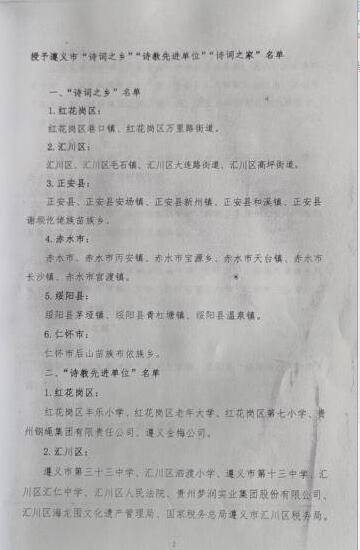 授予遵义市“诗词之乡”“诗教先进单位”“诗词之家”名单
一、“诗词之乡”名单
1.红花岗区：
红花岗区巷口镇、红花岗区万里路街道。
2.汇川区：
汇川区、汇川区毛石镇、汇川区大连路街道、汇川区高坪街道。
3.正安县：
正安县、正安县安场镇、正安县新州镇、正安县和溪镇、正安县
谢坝仡佬族苗族乡。
4.赤水市：
赤水市、赤水市丙安镇、赤水市宝源乡、赤水市天台镇、赤水市
长沙镇、赤水市官渡镇。
5.绥阳县：
绥阳县茅垭镇、绥阳县青杠塘镇、绥阳县温泉镇。
6.仁怀市：
仁怀市后山苗族布依族乡。
二、“诗教先进单位”名单
1.红花岗区：
红花岗区丰乐小学、红花岗区老年大学、红花岗区第七小学、贵
州钢绳集团有限责任公司、遵义金梅公司。
2.汇川区：
遵义市第三十三中学、汇川区泗渡小学、遵义市第十三中学、汇
川区汇仁中学、汇川区人民法院、贵州梦润实业集团股份有限公司、
汇川区海龙囤文化遗产管理局、国家税务总局遵义市汇川区税务局。
2